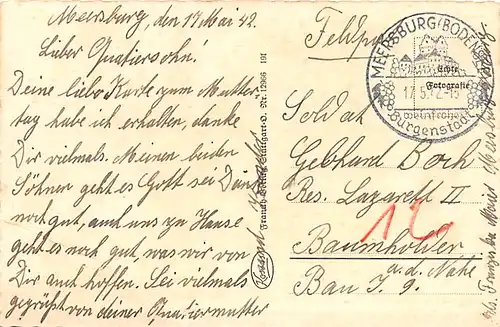 Meersburg, den 17. Mai 42.
Lieber Quatiersohn!
Deine liebe Karte zum Mutter
tag habe ich erhalten, danke
Dir vielmals. Meinen beiden
Söhnen geht es Gott sei Dank
noch gut, auch uns zu Hause
geht es noch gut, was wir von
Dir auch hoffen. Sei vielmals
gegrüßt von deiner Quatiermutter
Stuttgart-O. Nr. 12966 191
Feldpost
MEERSBURG (BODENSEE)
Echte
Fotografie
17.5.42-15
weinfrohe
Burgenstadt
Soldat
Gebhard Boch
Res. Lazarett II
Baumholder
a.d. Nahe
Bau I. 9.